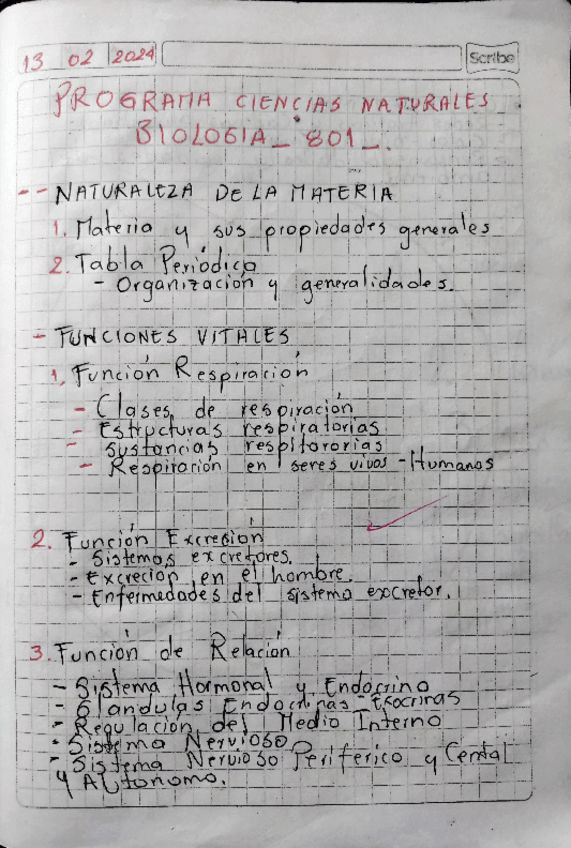 13 02 2024
Scribe
PROGRAMA CIENCIAS NATURALES
BIOLOGIA_ 801_.
-- NATURALEZA DE LA MATERIA
1. Materia y sus propiedades generales
2. Tabla Periódica
- Organización y generalidades.
- FUNCIONES VITALES
1. Función Respiración
- Clases de respiración
- Estructuras respiratorias
- sustancias respitororias
- Respiración en seres vivos - Humanos
2. Función Excresión
- Sistemas excretores.
- Excreción en el hombre.
- Enfermedades del sistema excretor.
3. Función de Relación
- Sistema Hormonal y Endocrino
- Glandulas Endocrinas - Exocrinas
- Regulación del Medio Interno
- Sistema Nervioso
- Sistema Nervioso Periferico y Cental
y Autonomo.